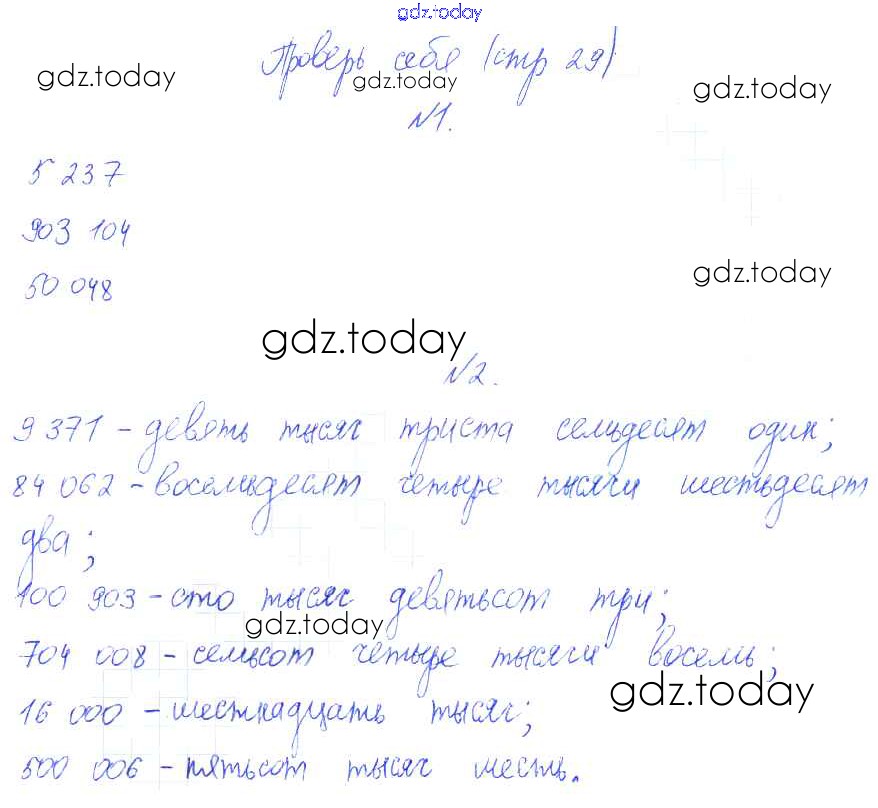 gdz.today
Проверь себя (стр 29)
gdz.today gdz.today gdz.today
№1.
5 237
903 104
50 048
gdz.today
gdz.today
№2.
9 371 - девять тысяч триста семьдесят один;
84 062 - восемьдесят четыре тысячи шестьдесят
два;
100 903 - сто тысяч девятьсот три;
gdz.today
704 008 - семьсот четыре тысячи восемь;
gdz.today
16 000 - шестнадцать тысяч;
500 006 - пятьсот тысяч шесть.